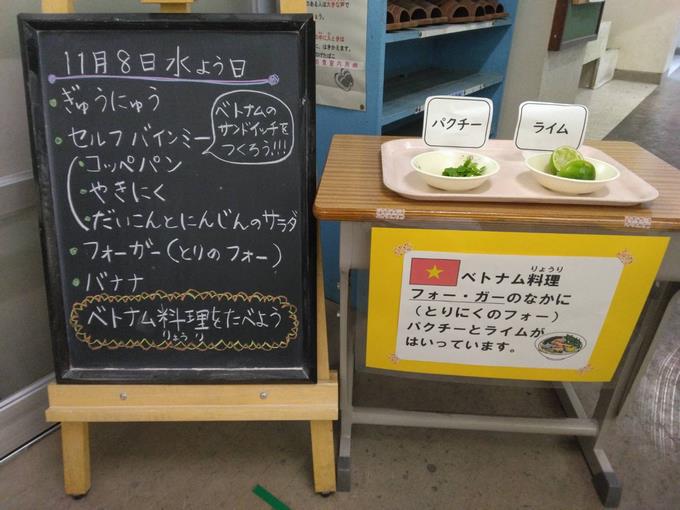 11月8日水よう日
ぎゅうにゅう
セルフバインミー
ベトナムの
サンドイッチを
つくろう!!!
コッペパン
やきにく
だいこんとにんじんのサラダ
フォーガー(とりのフォー)
バナナ
ベトナム料理をたべよう
りょうり
パクチー
ライム
りょうり
ベトナム料理
フォー・ガーのなかに
(とりにくのフォー)
パクチーとライムが
はいっています。